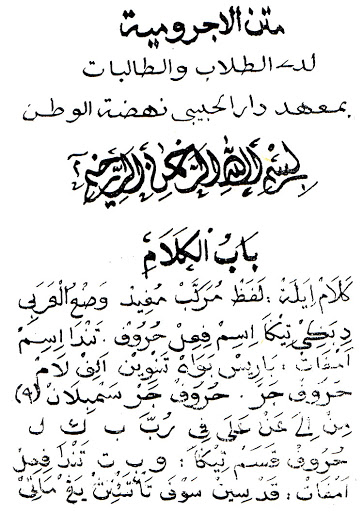 متن الاجرومية
لدى الطلاب والطالبات
بمعهد دار الحبيبى نهضة الوطن
بِسْمِ اللهِ الرَّحْمٰنِ الرَّحِيْمِ
بَابُ الْكَلَامِ
كَلَامْ اِيلَهْ : لَفَظْ مُرَكَّبْ مُفِيْدْ وَضْعْ الْعَرَبِي
دِبَكِي تِيكَا اِسِمْ فِعِلْ حُرُوفْ . تَنْدَا اِسِمْ
اَمْفَاتْ : بَارِيسْ بَوَاهْ تَنْوِينْ اَلِفْ لَامْ
حُرُوفْ جَرّ . حُرُوفْ جَرّ سَمْبِيلَانْ (٩)
مِنْ اِلَى عَنْ عَلَى فِي رُبَّ بِ كَ لِ
حُرُوفْ قَسَمْ تِيكَا : وَ بِ تَ تَنْدَا فِعِلْ
اَمْفَاتْ : قَدْ سِينْ سَوْفَ تَأْنِيْثْ يڠ مَاتِي